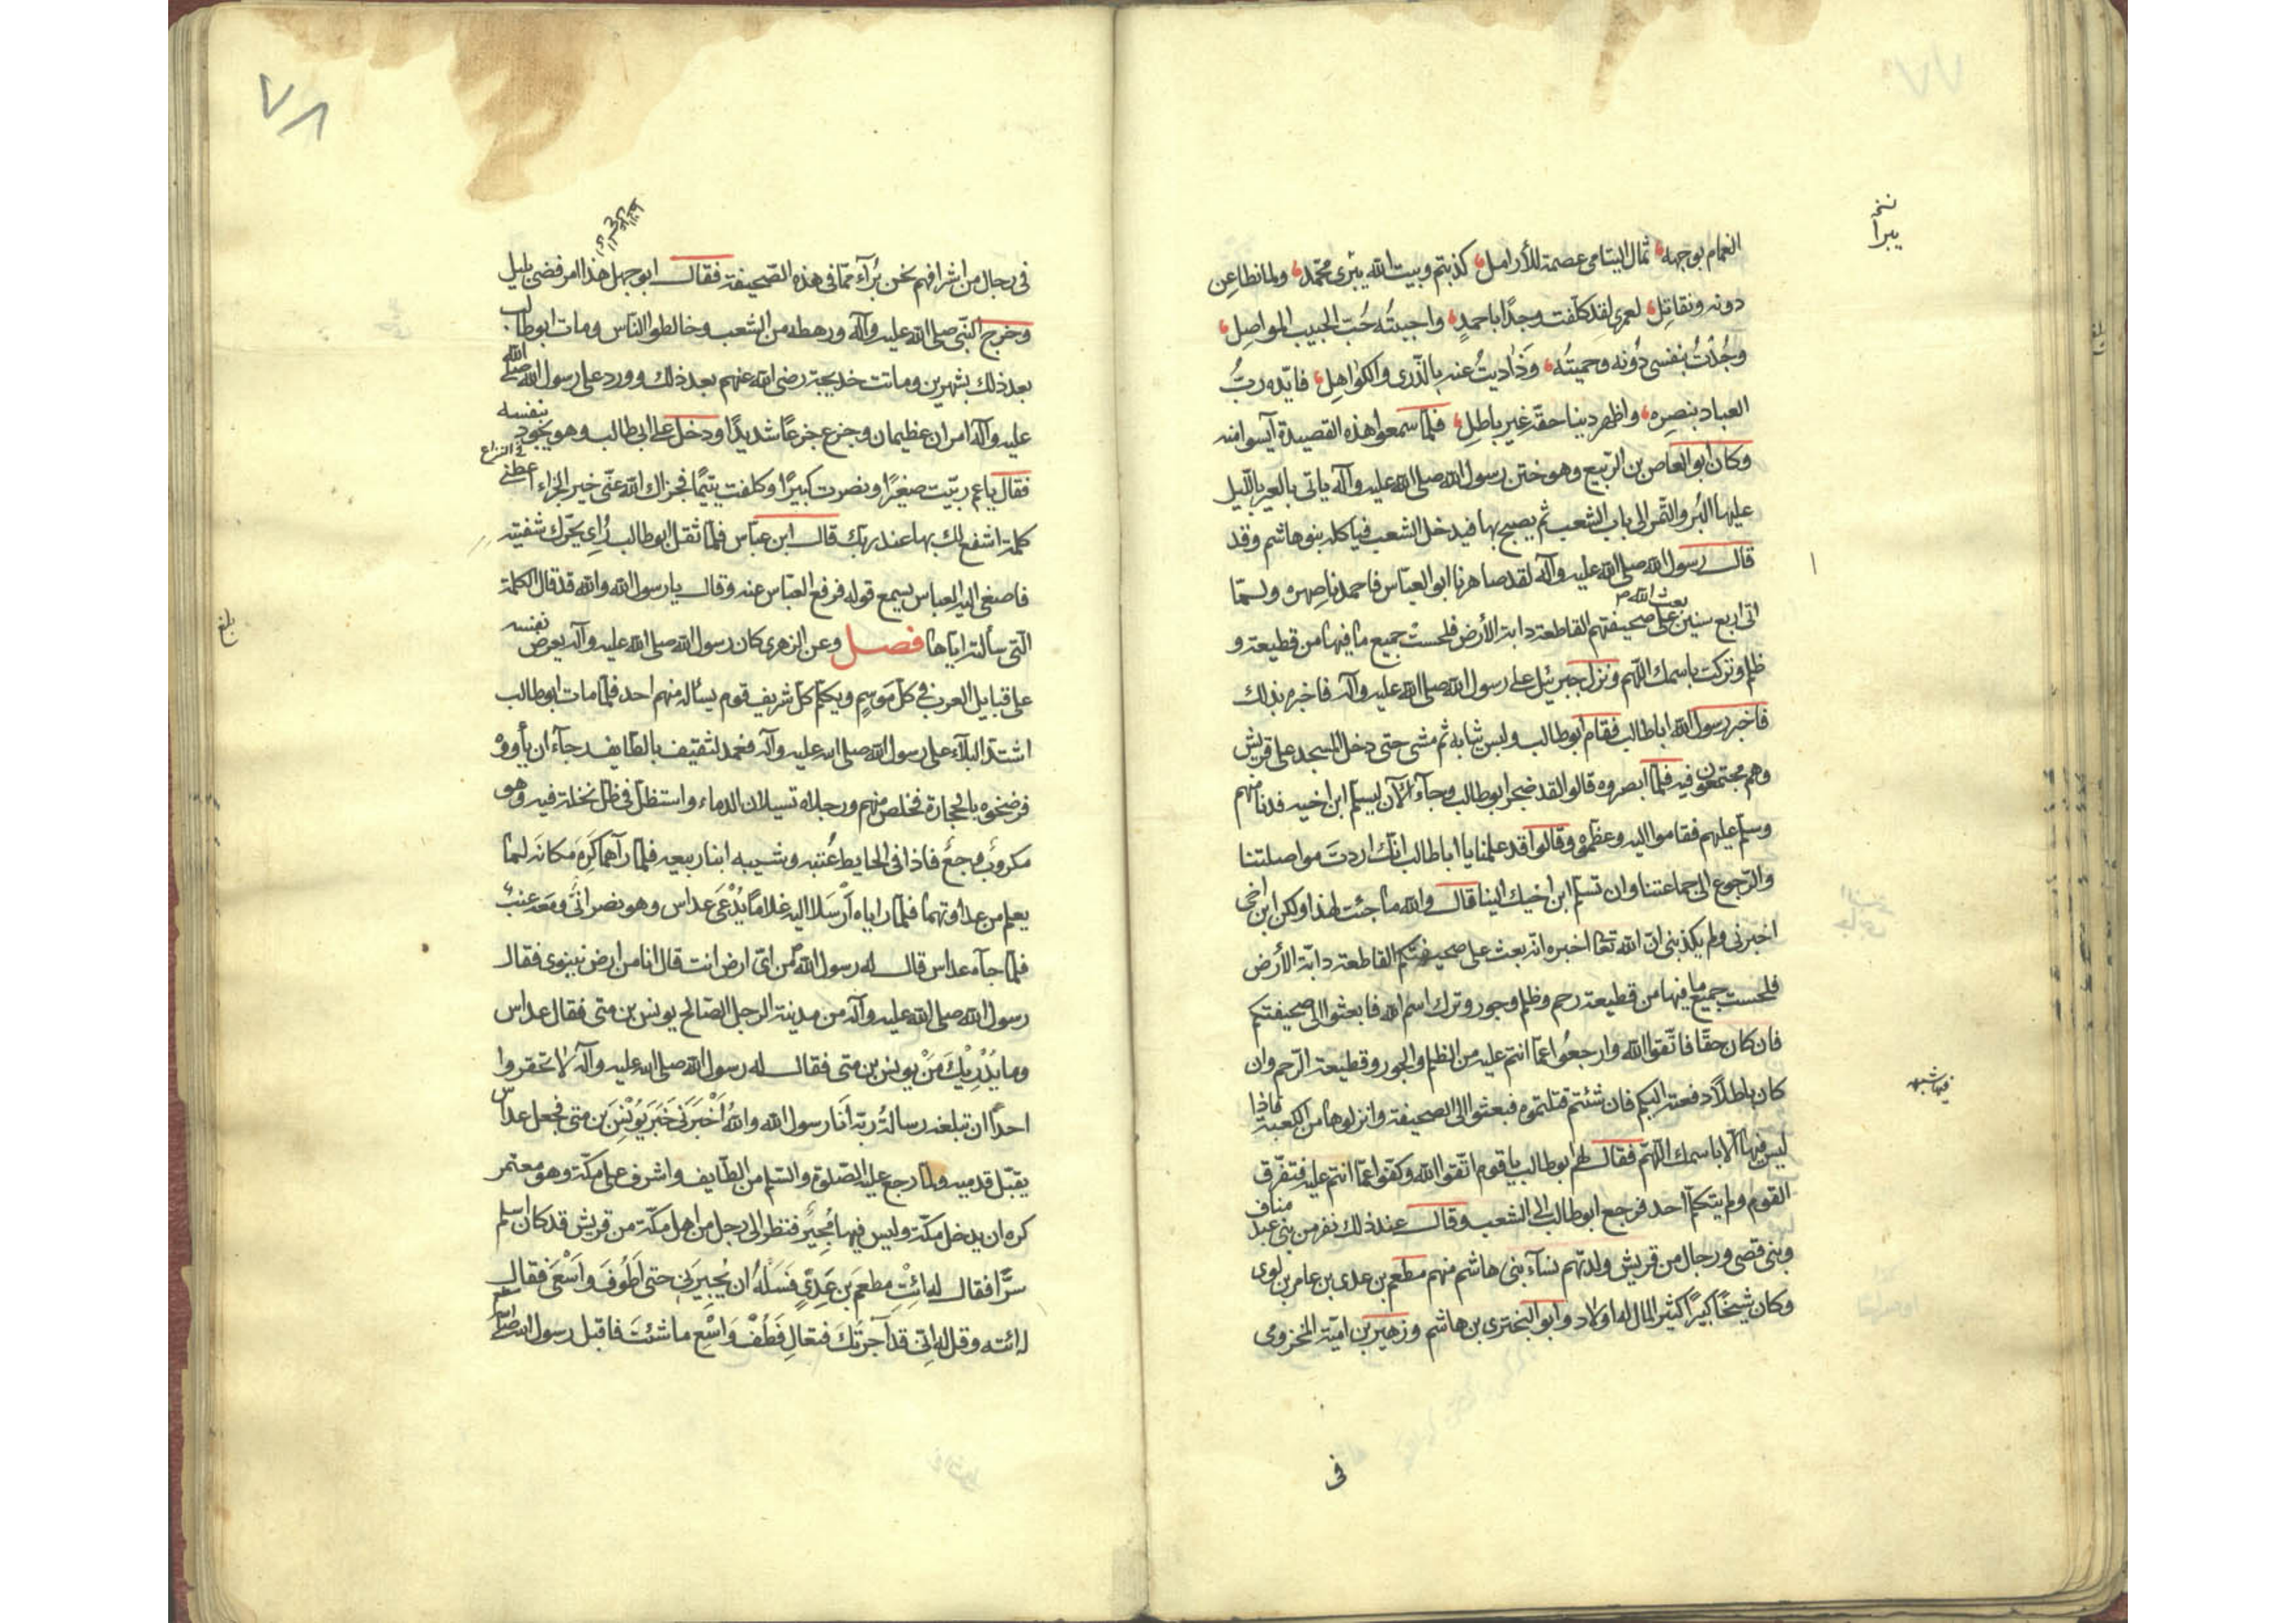 نخه
يبرا
الغمام بوجهه ثمال اليتامى عصمة للأرامل كذبتم وبيت الله يبزى محمد ولما نطاعن
دونه ونقاتل لعمرى لقد كلفت وجدًا باحمدٍ واحببتُه حُبّ الحبيب المواصِلِ
وجُدْتُ بنفسى دُونه وحميتُه وَدَاديتُ عنه بالذّرى والكواهِلِ فايّده ربُّ
العباد بنصرِه واظهر دينا حقّه غير باطلِ فلمّا سمعوا هذه القصيدة آيسوا منه
وكان ابو العاص بن الربيع وهو ختن رسول الله صلى الله عليه وآله ياتى بالعير بالليل
عليها البُر والتّمر الى باب الشعب ثم يصيح بها فيدخل الشعب فياكله بنو هاشم وقد
قال رسول الله صلى الله عليه وآله لقد صاهرنا ابو العباس فاحمدنا صهره ولمّا
اتى اربع سنين بعث الله على صحيفتهم القاطعة دابة الأرض فلحستْ جميع ما فيها من قطيعة و
ظلم وتركت باسمك اللّهم ونزل جبرئيل على رسول الله صلى الله عليه وآله فاخبره بذلك
فاخبر رسول الله ابا طالب فقام ابو طالب ولبس ثيابه ثم مشى حتى دخل المسجد على قريش
وهم مجتمعون فيه فلمّا ابصروه قالوا لقد ضجر ابو طالب وجاء الآن ليسلم ابن اخيه فدنا منهم
وسلم عليهم فقاموا اليه وعظّموه وقالوا قد علمنا يا ابا طالب انّك اردت مواصلتنا
والرّجوع الى جماعتنا وان تسلم ابن اخيك الينا قال والله ما جئت لهذا ولكن ابن اخى
اخبرنى ولم يكذبنى انّ الله تعالى اخبره انه بعث على صحيفتكم القاطعة دابة الأرض
فلحست جميع ما فيها من قطيعة رحم وظلم وجور وترك اسم الله فابعثوا الى صحيفتكم
فان كان حقّا فاتّقوا الله وارجعُوا عمّا انتم عليه من الظلم والجور وقطيعة الرّحم وان
كان باطلاً دفعته اليكم فان شئتم قتلتموه فبعثوا الى الصحيفة وانزلوها من الكعبة فاذا
ليس فيها الّا باسمك اللّهمّ فقال لهم ابو طالب يا قوم اتّقوا الله وكفّوا عمّا انتم عليه فتفرّق
القوم ولم يتكلّم احد فرجع ابو طالب الى الشعب وقال عند ذلك نفر من بنى عبد مناف
وبنى قصى ورجال من قريش ولدتهم نساء بنى هاشم منهم مطعم بن عدى بن عامر بن لوى
وكان شيخًا كبيرًا كثير المال له اولاد وابو البخترى بن هاشم وزهير بن اميّة المخزومى
فى
٧٨
فى رجال من اشرافهم نحن بُرآء ممّا فى هذه الصّحيفة فقال ابو جهل هذا امر قضى بليل
وخرج النّبى صلى الله عليه وآله ورهطه من الشعب وخالطوا الناس ومات ابو طالب
بعد ذلك بشهرين وماتت خديجة رضى الله عنهم بعد ذلك وورد على رسول الله صلى الله
عليه وآله امران عظيمان وجزع جزعًا شديدًا ودخل على ابى طالب وهو يجود بنفسه
فى النزاع
فقال يا عم ربّيت صغيرًا ونصرت كبيرًا وكفلت يتيمًا فجزاك الله عنّى خير الجزاء اعطنى
كلمة اشفع لك بها عند ربك قال ابن عباس فلمّا ثقل ابو طالب رُاى يحرّك شفتيه
فاصغى اليه العباس يسمع قوله فرفع العبّاس عنه وقال يا رسول الله والله قد قال الكلمة
الّتى سألته اياها فصل وعن الزهرى كان رسول الله صلى الله عليه وآله يعرض نفسه
على قبايل العرب فى كلّ موسمٍ ويكلّم كلّ شريف قوم يسأله منهم احد فلمّا مات ابو طالب
اشتدّ البلاء على رسول الله صلى الله عليه وآله فعمد لثقيف بالطايف رجآء ان يأووه
فرضخوه بالحجارة فخلص منهم ورجلاه تسيلان الدماء واستظلّ فى ظلّ نخلة فيه وهو
مكروبٌ موجعٌ فاذا فى الحايط عُتبه وشيبه ابنا ربيعه فلمّا رآهما كَرِهَ مكانَه لما
يعلم من عداوتهما فلمّا راياه أرْسَلا اليه غلامًا يُدْعَى عداس وهو نصرانّى ومَعَه عنبٌ
فلمّا جآءه عداس قال له رسول الله من اىّ ارض انت قال انا من ارض نينوى فقال
رسول الله صلى الله عليه وآله من مدينة الرجل الصّالح يونس بن متى فقال عداس
وما يُدْرِيْكَ مَنْ يونس بن متى فقال له رسول الله صلى الله عليه وآله لا تحقروا
احدًا ان تبلغه رسالةُ ربه أنَا رسول الله واللهُ أَخْبَرَنى خَبَر يُوْنسَ بن متى فجعل عداس
يقبّل قدميه ولمّا رجع عليه الصّلوة والسّلم من الطّايف واشرف على مكّة وهو معتمر
كره ان يدخل مكّة وليس فيها مُجِيرٌ فنظر الى رجل من اهل مكّة من قريش قد كان اسلم
سرًّا فقال له ائْتِ مطعم بن عَدِىٍّ فَسَلْهُ ان يُجِيرَنى حتى اَطُوفَ واَسْعَى فقال
له ائته وقل له انّى قد آجرتكَ فتعالِ فَطُفْ وَاسْعِ ما شئتَ فاقبل رسول الله صلى
بلغ